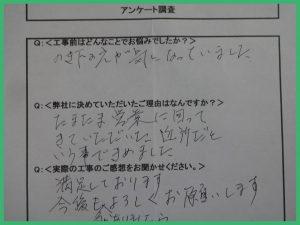 アンケート調査
Q:<工事前はどんなことでお悩みでしたか?>
のき下の穴が気になっていました
Q:<弊社に決めていただいたご理由はなんですか?>
たまたま営業に回って
きていただいた 近所だと
いう事できめました
Q:<実際の工事のご感想をお聞かせください。>
満足しております
今後もよろしくお願いします
ありましたら